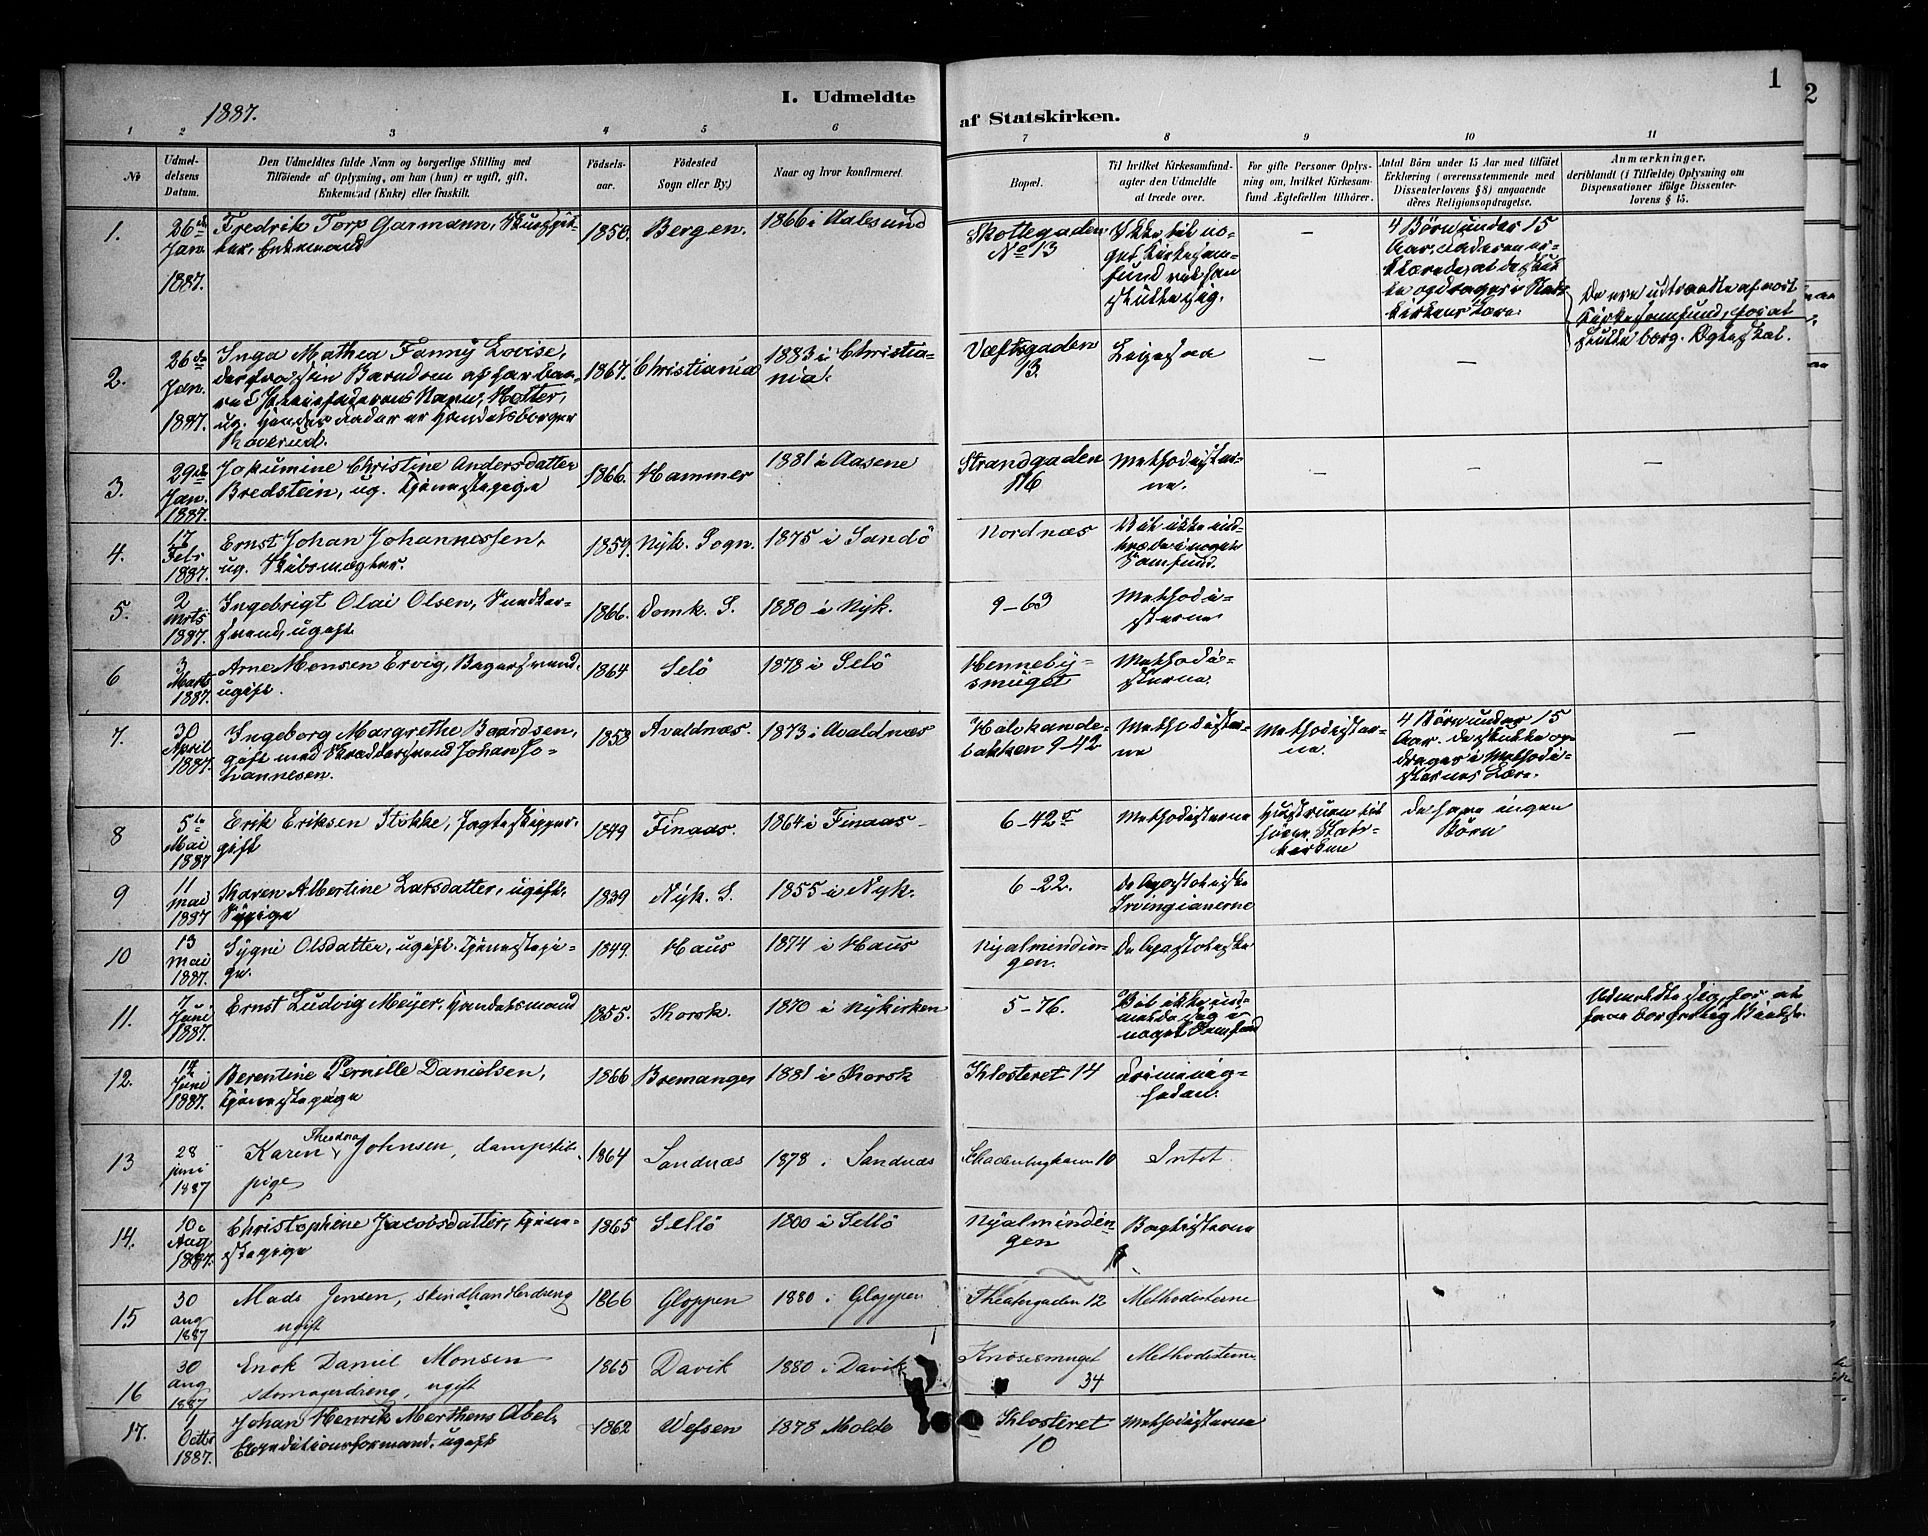 1887.
I. Udmeldte
af Statskirken.
1
2
1 2 3 4 5 6 7 8 9 10 11
No
Udmel-
delsens
Datum.
Den Udmeldtes fulde Navn og borgerlige Stilling med
Tilføiende af Oplysning, om han (hun) er ugift, gift,
Enkemand (Enke) eller fraskilt.
Fødsels-
aar.
Fødested
Sogn eller By.)
Naar og hvor konfirmeret.
Bopæl.
Til hvilket Kirkesamfund-
agter den Udmeldte
at træde over.
For gifte Personer Oplys-
ning om, hvilket Kirkesam-
fund Ægtefællen tilhører.
Antal Børn under 15 Aar med tilføiet
Erklæring (overensstemmende med
Dissenterlovens § 8) angaaende
deres Religionsopdragelse.
Anmærkninger,
deriblandt (i Tilfælde) Oplysning om
Dispensationer ifølge Dissenter-
lovens § 15.
1.
26de
Jan.
1887.
Fredrik Torp Garmann,
Enkemand
1850.
Bergen.
1866 i Aalesund
Skottegaden
No 13
Ikke til no-
get Kirkesam-
fund vil han
slutte sig.
–
4 Børn under 15
Aar,
De ere udtraadte af vort
Kirkesamfund, for at
slutte borg. Ægteskab.
2.
26de
Jan.
1887.
Inga Mathea Fanny Lovise,
ug.
1867.
Christiania
1883 i Christia-
nia.
13.
Ligesaa
–
–
3.
29de
Jan.
1887.
Jokumine Christine Andersdatter
Bredstein, ug. Tjenestepige
1866.
Hammer
1881 i Aasene
Strandgaden
176
Methodister-
ne.
–
–
–
4.
17
Febr
1887.
Ernst Johan Johannessen,
ug.
1859.
Nyk. Sogn.
1875 i Sandö
Nordnæs
Vil ikke ind-
træde i noget
Samfund.
5.
2
Mrts
1887.
Ingebrigt Olai Olsen,
svend, ugift
1866.
Domk. S.
1880 i Nyk.
9–63
Methodi-
sterne
6
3
Marts
1887.
Arne Monsen Ervig, Bagersvend,
ugift.
1864
Selö
1878 i Selö
Henneby-
smuget
Methodi-
sterne.
7.
30
April
1887.
Ingeborg Margrethe Baardsen,
gift med Skræddersvend Johan Jo-
hannesen.
1853
Avaldnæs.
1873 i Avaldnæs
Halskande-
bakken 9–42
Methodister-
ne
Methodister-
ne.
4 Børn under 15
Aar. De skulle op-
drages i Methodi-
sternes Lære.
–
8
5te
Mai
1887
Erik Eriksen Stokke, Jagteskipper,
gift
1849
Finaas.
1864 i Finaas
6–42
Methodisterne
Hustruen til
hører Stats-
kirken
De have ingen
Børn
9
11
Mai
1887
Karen Albertine Larsdatter, ugift,
Sypige
1839
Nyk. S.
1855 i Nyk.
6–22.
De Apostoliske
Irvingianerne
10
13
Mai
1887.
Sygni Olsdatter, ugift. Tjenestepi-
ge.
1849.
Haus
1874 i Haus
Nyalmindin-
gen.
De Apostoliske
11.
7
Juni
1887.
Ernst Ludvig Meyer, Handelsmand
1855.
Korsk.
1870 i Nykirken
5–76.
Vil ikke ind-
melde sig i
noget Samfund
Udmeldte sig, for at
faae borgerlig
12.
14
Juni
1887.
Berentine Pernille Danielsen,
Tjenestepige
1866
Bremanger
1881 i Korsk
Klosteret 14
Frimenig-
heden.
13
28
juni
1887
Karen Theodora Johnsen, dampskibs-
pige
1864
Sandnæs
1878 i Sandnæs
10
Intet.
14.
10
Aug
1887.
Christophine Jacobsdatter, Tjene-
stepige
1865
Sellö
1880 i Sellö
Nyalmindin-
gen
Baptisterne
15
30
aug
1887
Mads Jensen, skindhandlerdreng
ugift
1866
Gloppen
1880 i Gloppen
Theatergaden 12
Methodisterne
16
30
aug
1887
Enok Daniel Monsen
skomagerdreng, ugift
1865
Davik
1880 i Davik
Knösesmuget
34
Methodisterne
17.
1
Octb
1887.
Johan Henrik Merthens Abel,
Expeditionsformand, ugift
1862
Vefsen
1878 Molde
Klosteret
10
Methodisterne